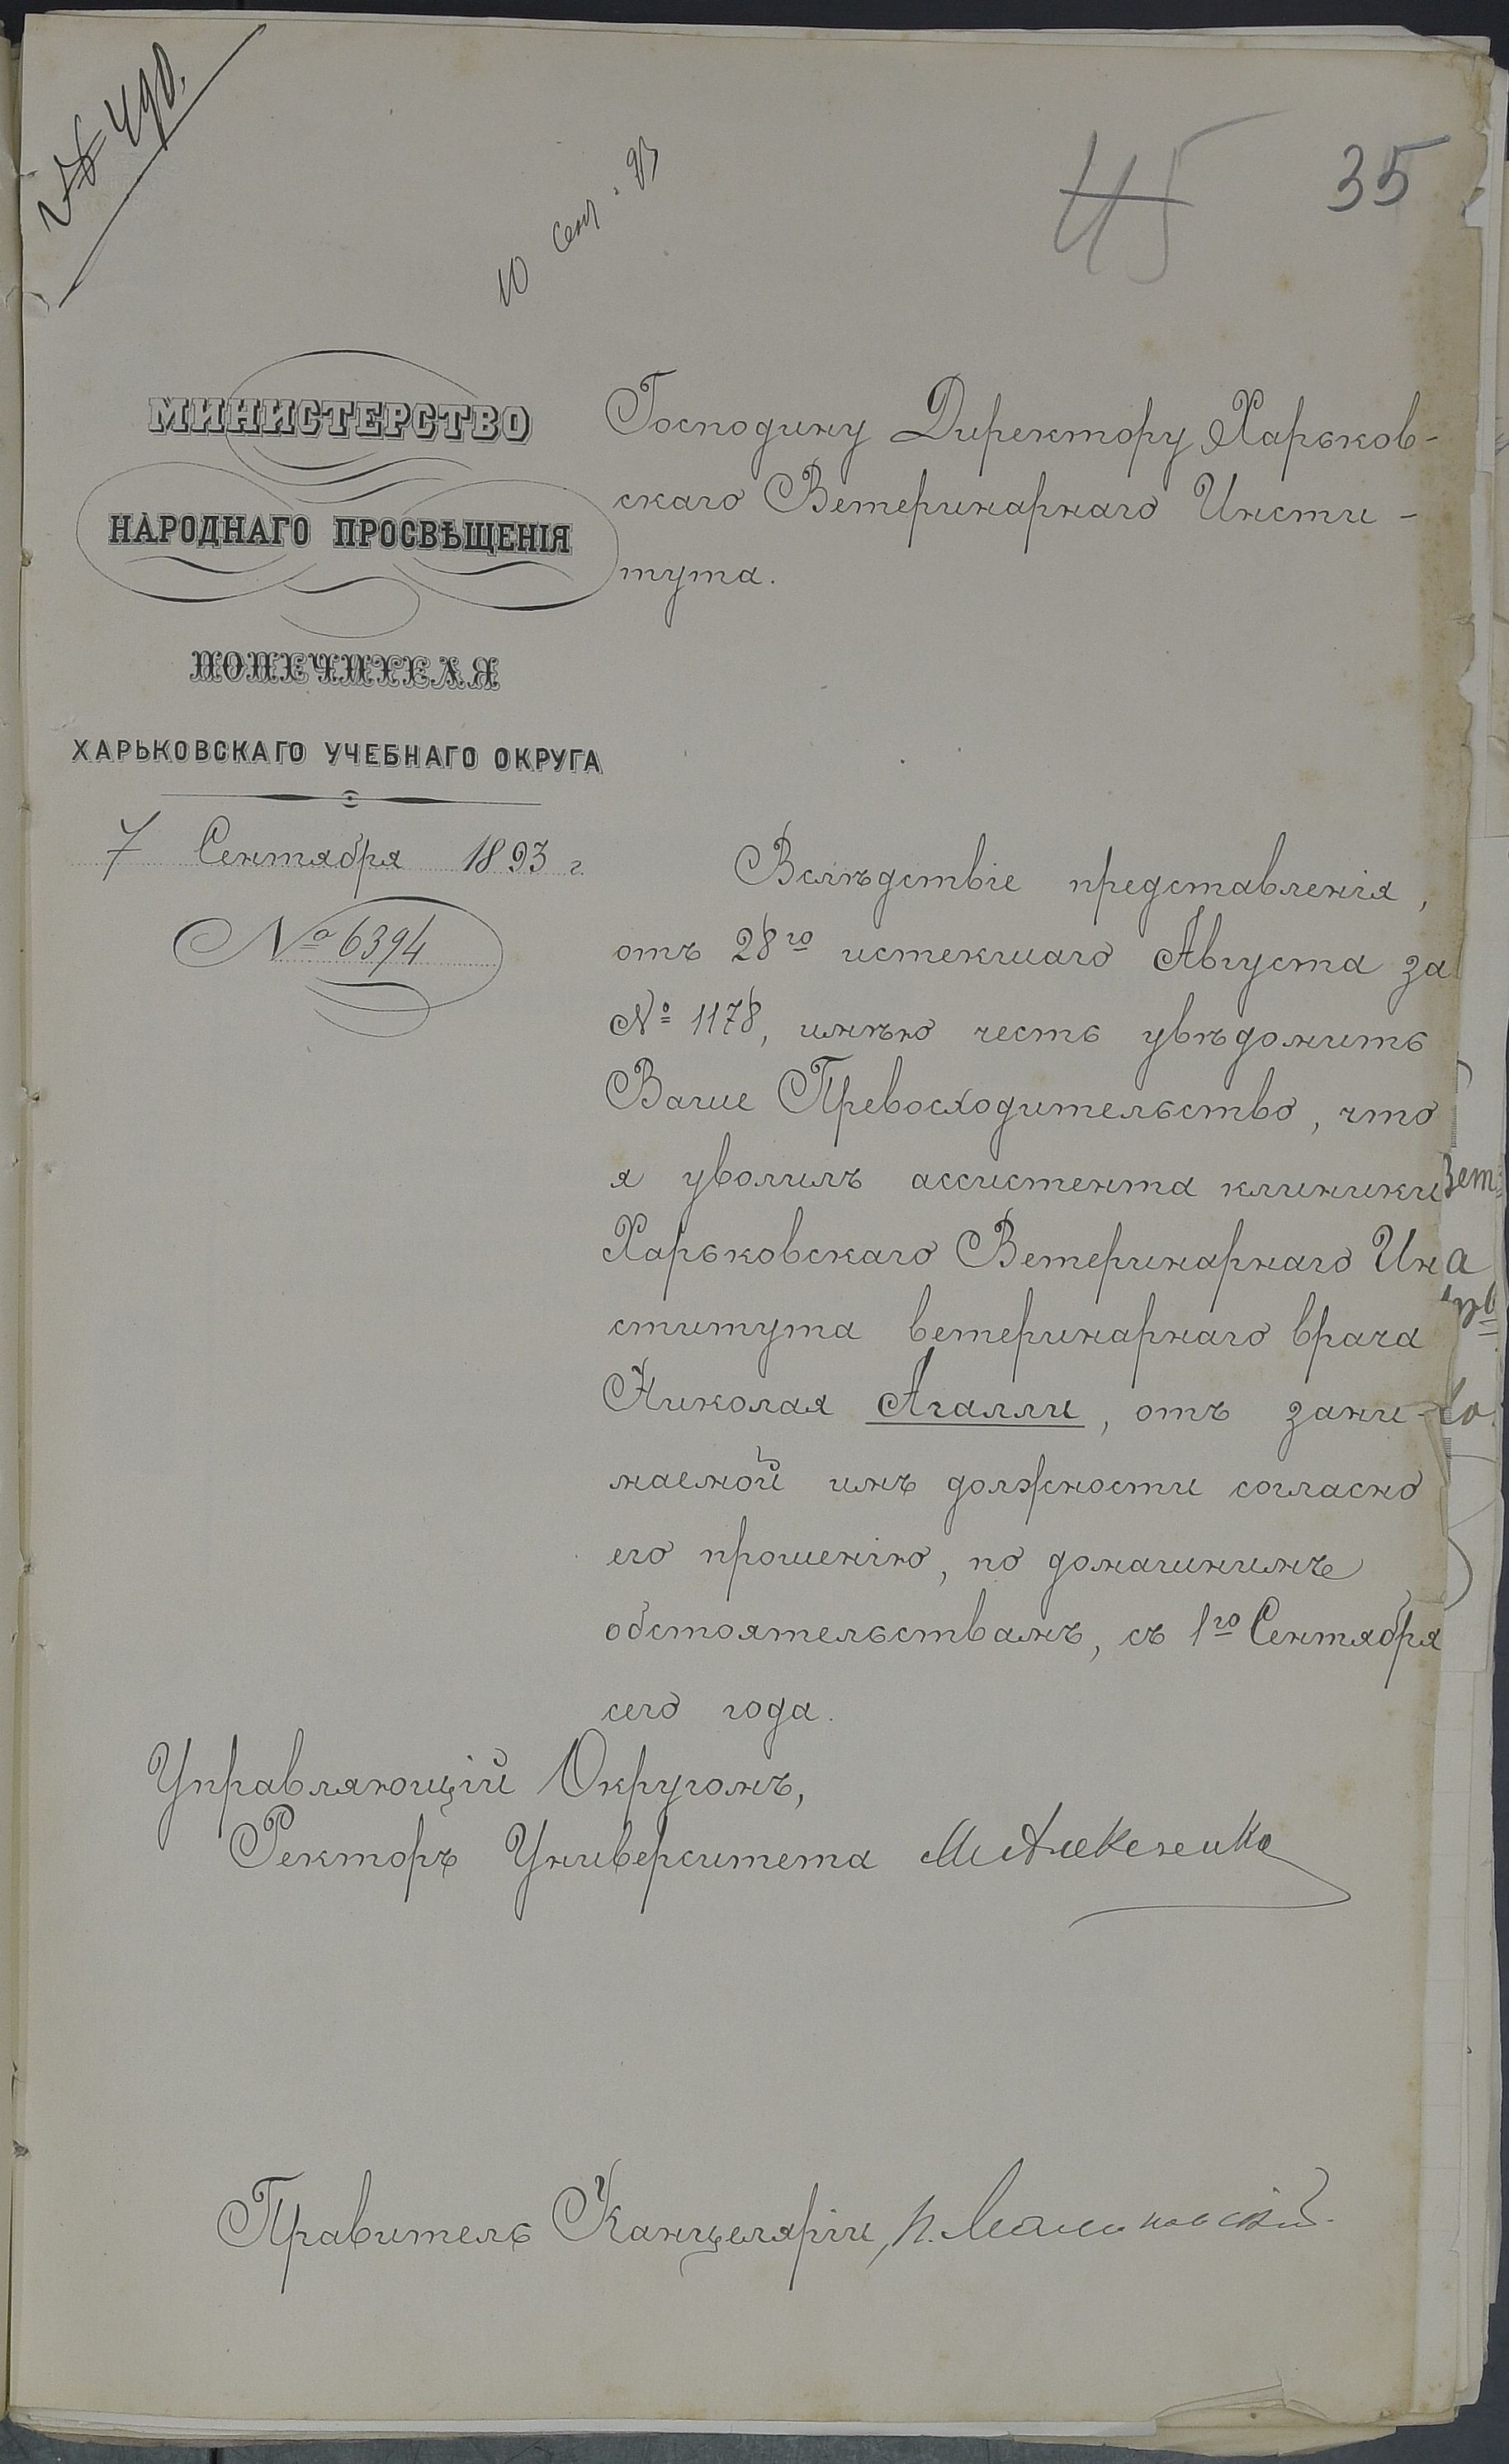 № 490.
10 Сент. 93
45 35
МИНИСТЕРСТВО
НАРОДНАГО ПРОСВѢЩЕНІЯ
ПОПЕЧИТЕЛЯ
ХАРЬКОВСКАГО УЧЕБНАГО ОКРУГА
7 Сентября 1893 г.
№ 6394
Господину Директору Харьков-
скаго Ветеринарнаго Инсти-
тута.
Вслѣдствіе представленія,
отъ 28го истекшаго Августа за
№ 1178, имѣю честь увѣдомить
Ваше Превосходительство, что
я уволилъ ассистента клиники
Харьковскаго Ветеринарнаго Ин
ститута ветеринарнаго врача
Николая Агалли, отъ зани-
маемой имъ должности согласно
его прошенію, по домашнимъ
обстоятельствамъ, съ 1го Сентября
сего года.
Управляющій Округомъ,
Ректоръ Университета М Алексеенко
Правитель Канцеляріи,